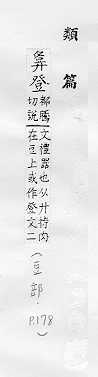 類篇
登 都騰切說文禮器也从廾持肉在豆上或作登文二（豆部．P.178）